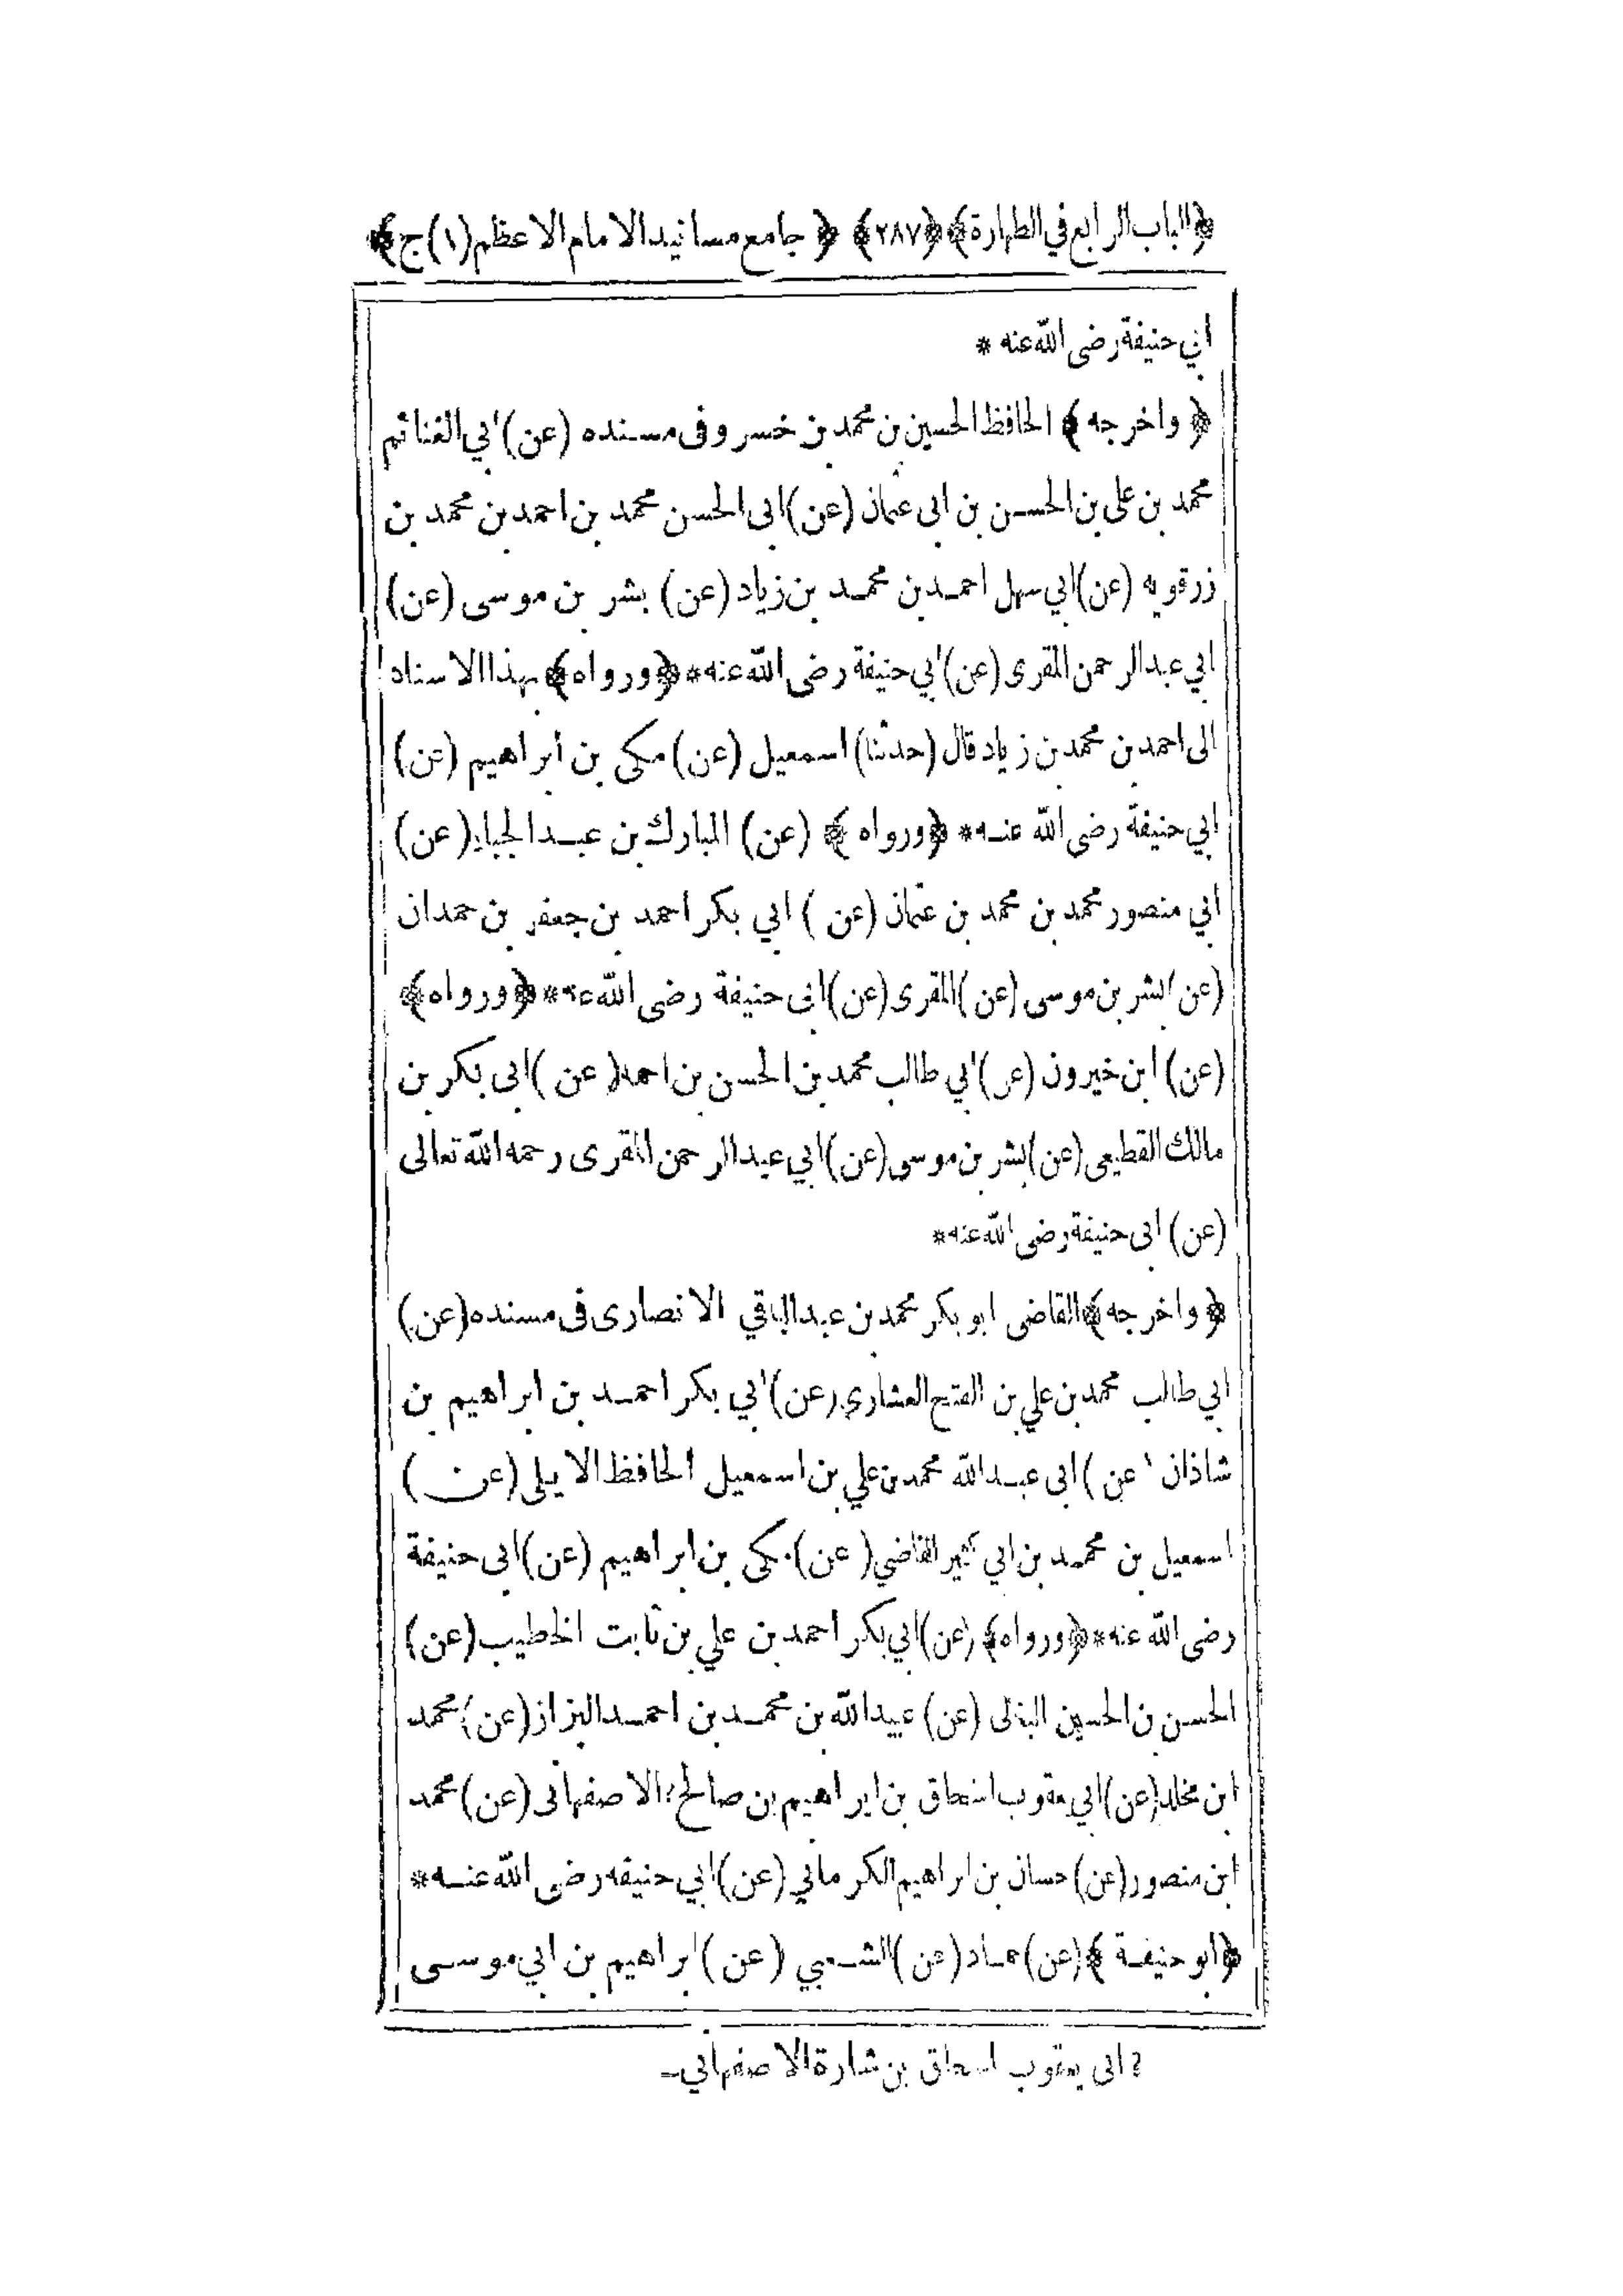 ﴿الباب الرابع في الطهارة﴾ ﴿٢٨٧﴾ ﴿جامع مسانيد الامام الاعظم (١) ج﴾
ابي حنيفة رضى الله عنه *
﴿واخرجه﴾ الحافظ الحسين بن محمد بن خسرو فى مسنده (عن) ابي الغنائم
محمد بن على بن الحسن بن ابى عثمان (عن) ابى الحسن محمد بن احمد بن محمد بن
زرقويه (عن) ابي سهل احمد بن محمد بن زياد (عن) بشر بن موسى (عن)
ابي عبد الرحمن المقرى (عن) ابي حنيفة رضى الله عنه * ﴿ورواه﴾ بهذا الاسناد
الى احمد بن محمد بن زياد قال (حدثنا) اسمعيل (عن) مكى بن ابراهيم (عن)
ابي حنيفة رضى الله عنه * ﴿ورواه﴾ (عن) المبارك بن عبد الجبار (عن)
ابي منصور محمد بن محمد بن عثمان (عن) ابي بكر احمد بن جعفر بن حمدان
(عن) بشر بن موسى (عن) المقرى (عن) ابى حنيفة رضى الله عنه * ﴿ورواه﴾
(عن) ابن خيرون (عن) ابي طالب محمد بن الحسن بن احمد (عن) ابى بكر بن
مالك القطيعى (عن) بشر بن موسى (عن) ابي عبد الرحمن المقرى رحمه الله تعالى
(عن) ابى حنيفة رضى الله عنه *
﴿واخرجه﴾ القاضى ابو بكر محمد بن عبد الباقي الانصارى فى مسنده (عن)
ابي طالب محمد بن علي بن الفتح العشاري (عن) ابي بكر احمد بن ابراهيم بن
شاذان (عن) ابى عبد الله محمد بن علي بن اسمعيل الحافظ الايلى (عن)
اسمعيل بن محمد بن ابي كثير القاضي (عن) مكى بن ابراهيم (عن) ابى حنيفة
رضى الله عنه * ﴿ورواه﴾ (عن) ابي بكر احمد بن علي بن ثابت الخطيب (عن)
الحسن بن الحسين (عن) عبيد الله بن محمد بن احمد البزاز (عن) محمد
ابن مخلد (عن) ابي يعقوب اسحاق بن ابراهيم بن صالح ٢ الاصفهانى (عن) محمد
ابن منصور (عن) حسان بن ابراهيم الكرماني (عن) ابي حنيفه رضى الله عنه *
﴿ابو حنيفة﴾ (عن) حماد (عن) الشعبي (عن) ابراهيم بن ابي موسى
٢ ابى يعقوب اسحاق بن شارة الاصفهاني ـ